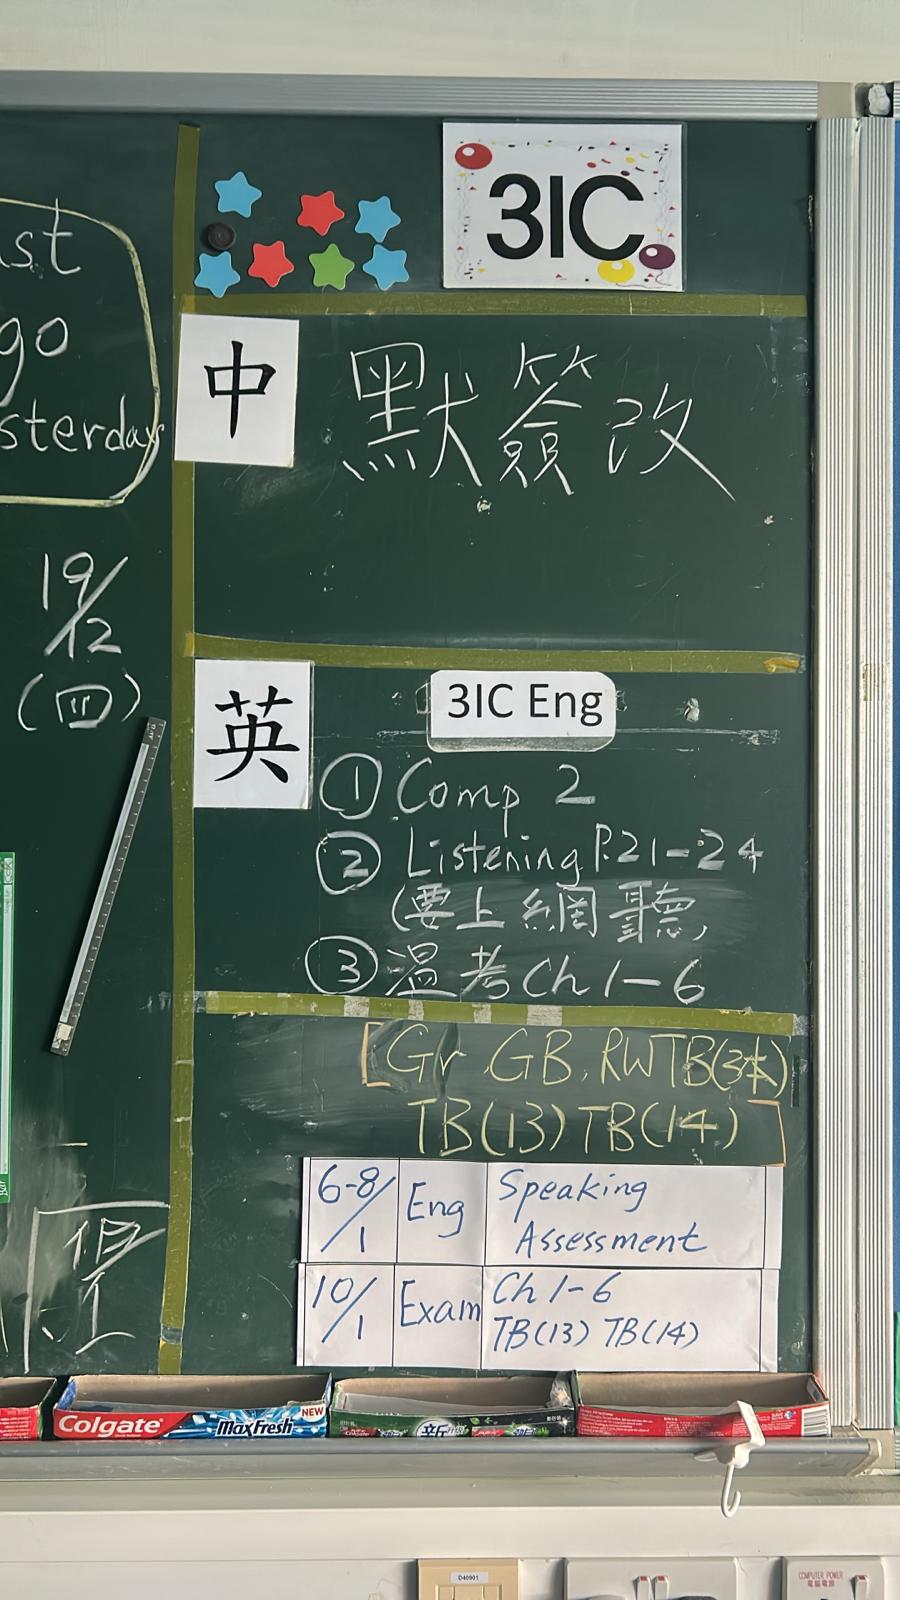 ast
go
sterday
19/12
(四)
3IC
中
默簽改
英
3IC Eng
① Comp 2
② Listening P.21-24
(要上網聽)
③ 溫考 Ch 1-6
[Gr, GB, RWTB(3本)
TB(13) TB(14)]
6-8/1 Eng Speaking Assessment
10/1 Exam Ch 1-6
TB(13) TB(14)
Colgate MaxFresh NEW
Colgate
D40901
COMPUTER POWER
電腦電源